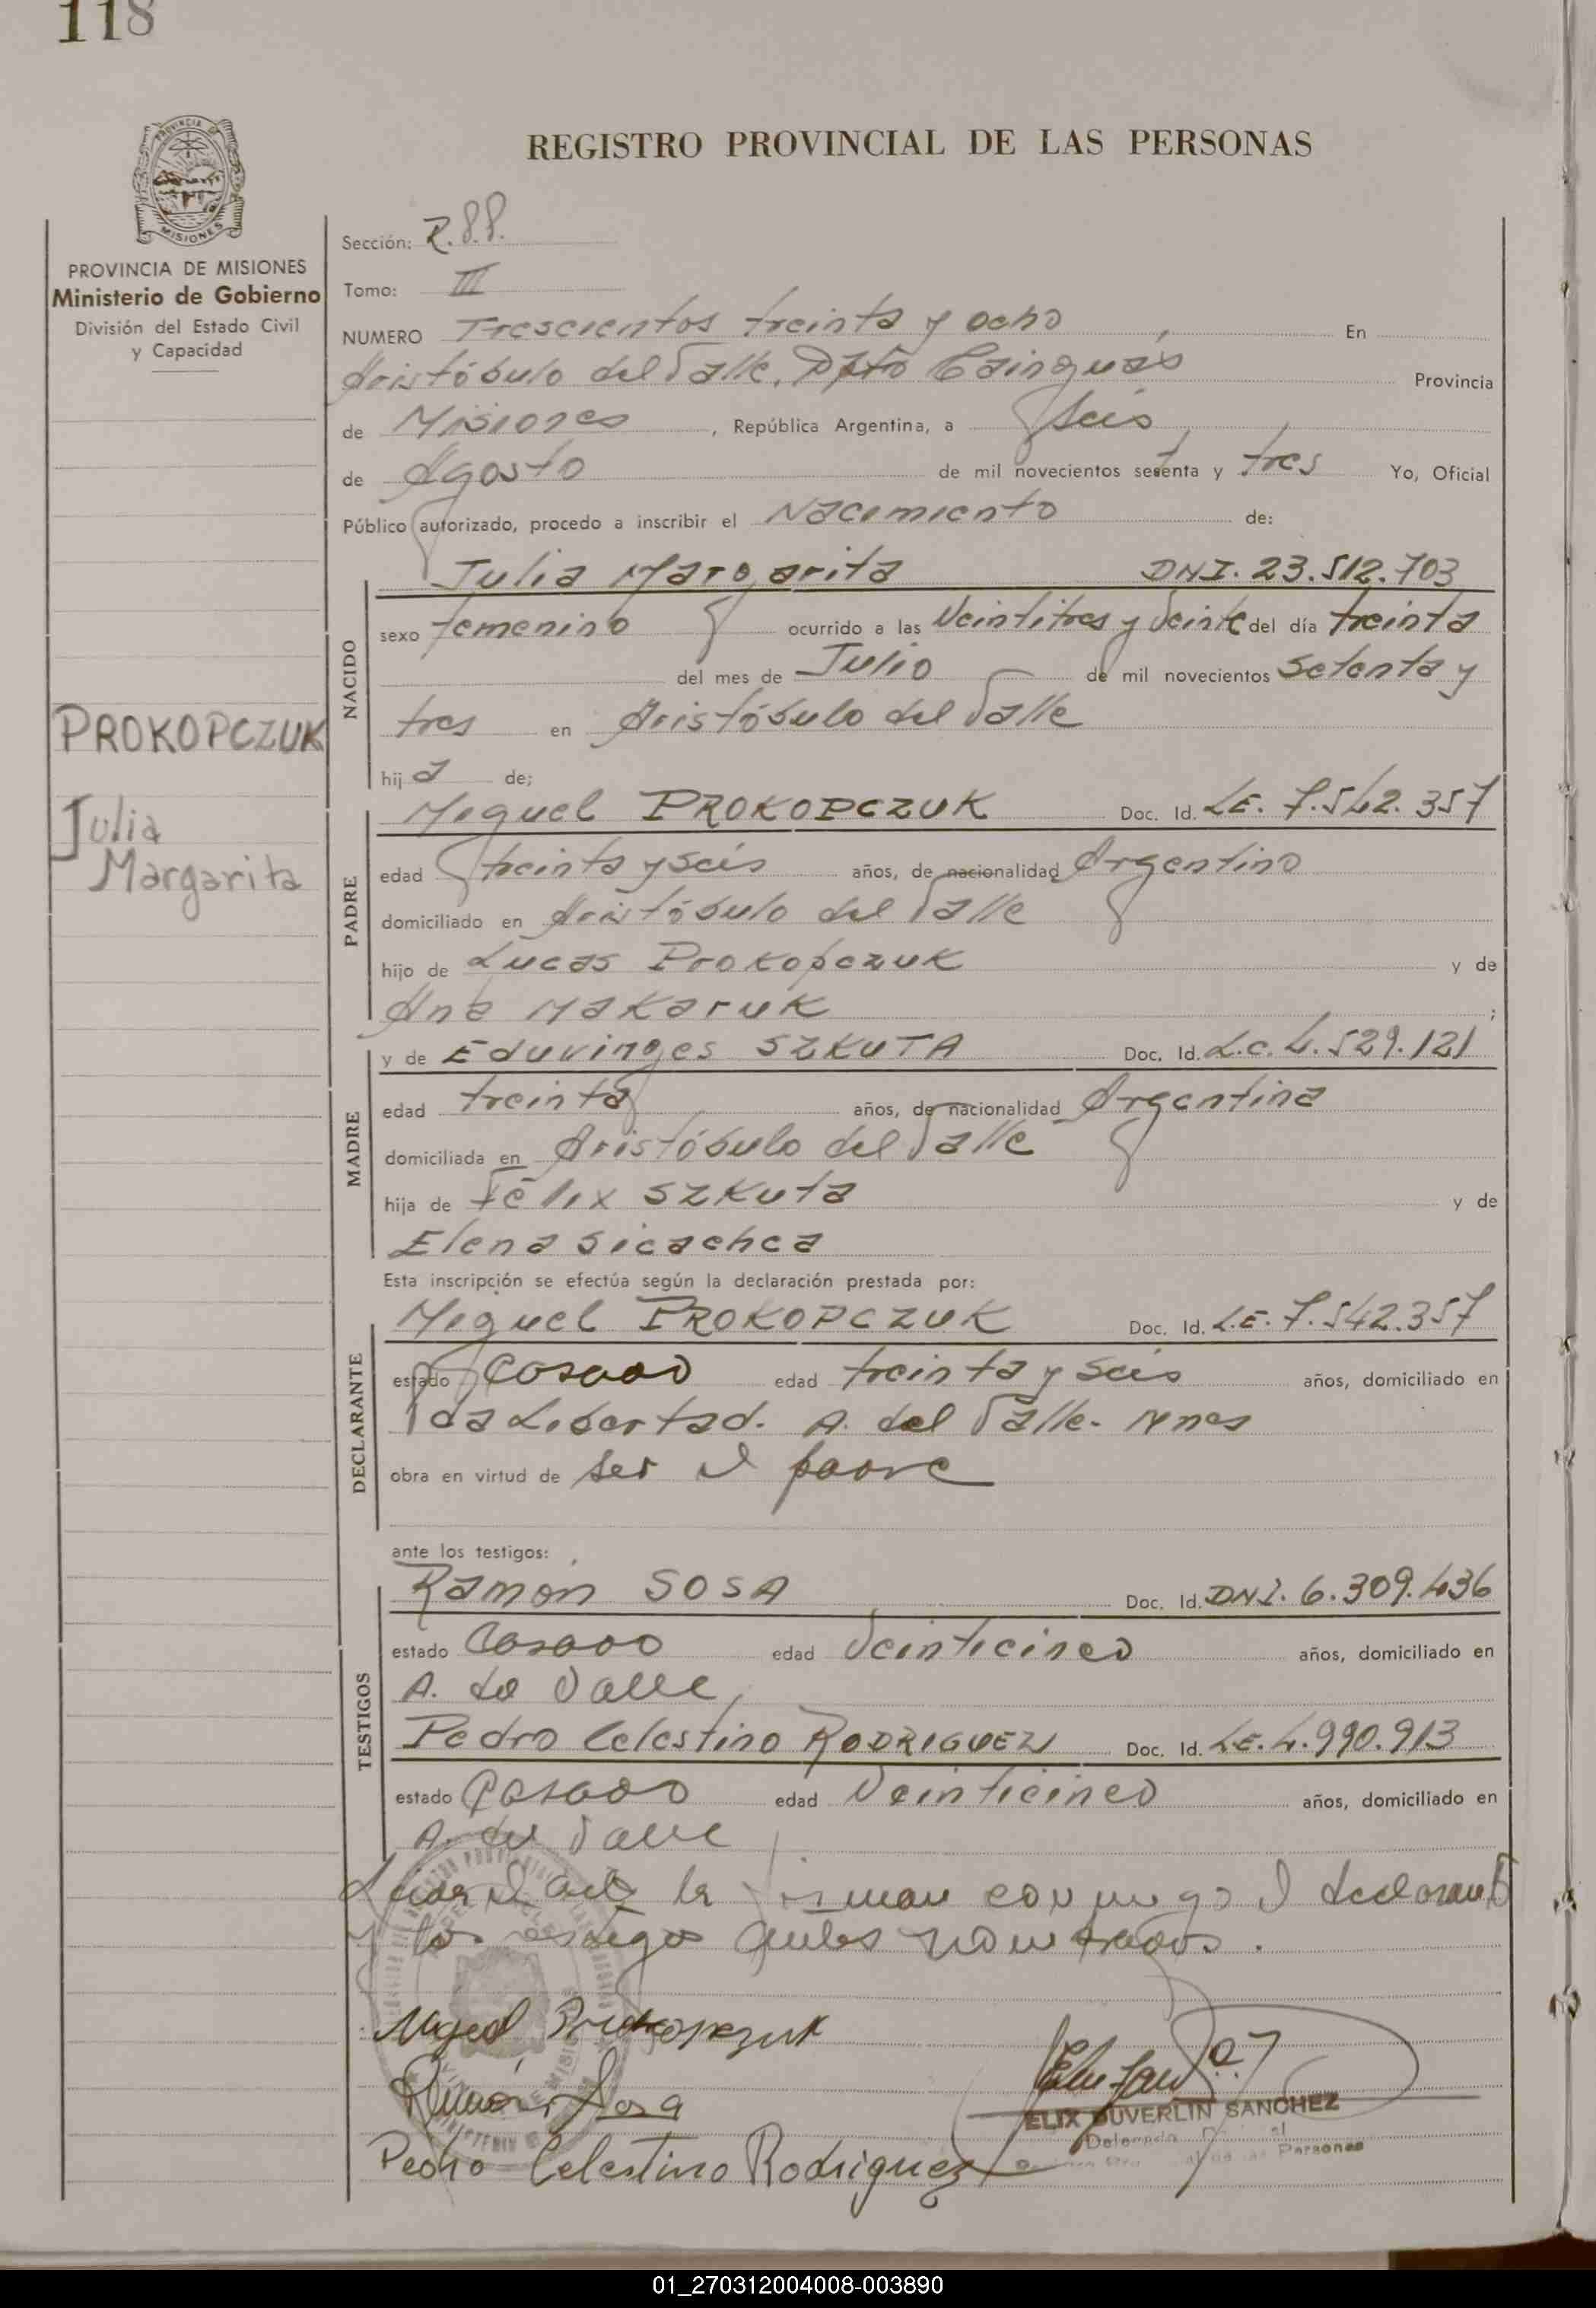 118
REGISTRO PROVINCIAL DE LAS PERSONAS
PROVINCIA DE MISIONES
Ministerio de Gobierno
División del Estado Civil
y Capacidad
PROKOPCZUK
Julia
Margarita
Sección: R.88.
Tomo: III
NUMERO Trescientos treinta y ocho, En
Aristóbulo del Valle, Dpto Cainguás Provincia
de Misiones, República Argentina, a Seis
de Agosto de mil novecientos setenta y tres Yo, Oficial
Público autorizado, procedo a inscribir el Nacimiento de:
NACIDO
Julia Margarita DNI. 23.512.703
sexo femenino ocurrido a las Veintitres y Veinte del día treinta
del mes de Julio de mil novecientos setenta y
tres en Aristóbulo del Valle
hija de;
PADRE
Miguel PROKOPCZUK Doc. Id. LE. 7.542.357
edad treinta y seis años, de nacionalidad Argentino
domiciliado en Aristóbulo del Valle
hijo de Lucas Prokopczuk y de
Ana Makaruk ;
MADRE
y de Eduvinges SZKUTA Doc. Id. L.C. 4.529.121
edad treinta años, de nacionalidad Argentina
domiciliada en Aristóbulo del Valle
hija de Félix Szkuta y de
Elena Sicachca
Esta inscripción se efectúa según la declaración prestada por:
DECLARANTE
Miguel PROKOPCZUK Doc. Id. L.E. 7.542.357
estado Casado edad treinta y seis años, domiciliado en
Pda Libertad. A. del Valle- Mnes
obra en virtud de ser el padre
ante los testigos:
TESTIGOS
Ramón SOSA Doc. Id. DNI. 6.309.436
estado Casado edad Veinticinco años, domiciliado en
A. del Valle,
Pedro Celestino RODRIGUEZ Doc. Id. LE. 4.990.913
estado Casado edad Veinticinco años, domiciliado en
A. del Valle
Leida el acta la firman conmigo el declarante
y los testigos antes nombrados.
Miguel Prokopczuk
Ramón Sosa
Pedro Celestino Rodriguez
ELIX DUVERLIN SANCHEZ
Personas
01_270312004008-003890